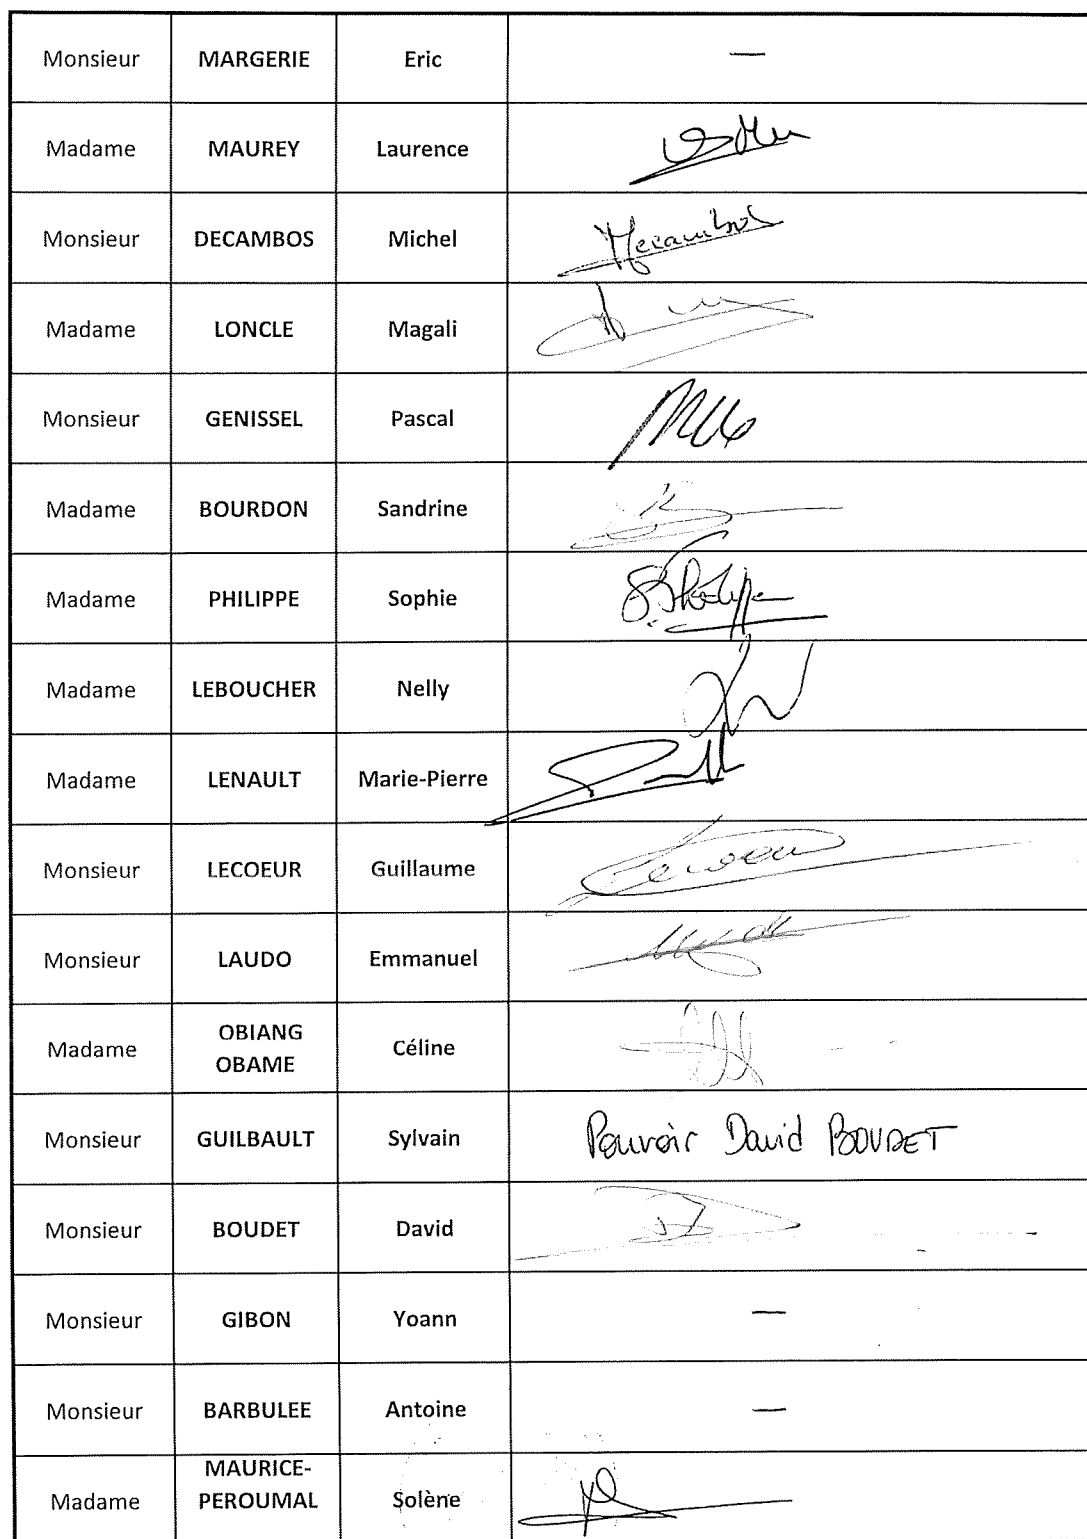 Monsieur MARGERIE Eric —
Madame MAUREY Laurence
Monsieur DECAMBOS Michel
Madame LONCLE Magali
Monsieur GENISSEL Pascal
Madame BOURDON Sandrine
Madame PHILIPPE Sophie
Madame LEBOUCHER Nelly
Madame LENAULT Marie-Pierre
Monsieur LECOEUR Guillaume
Monsieur LAUDO Emmanuel
Madame OBIANG
OBAME Céline
Monsieur GUILBAULT Sylvain Pouvoir David BOUDET
Monsieur BOUDET David
Monsieur GIBON Yoann —
Monsieur BARBULEE Antoine —
Madame MAURICE-
PEROUMAL Solène